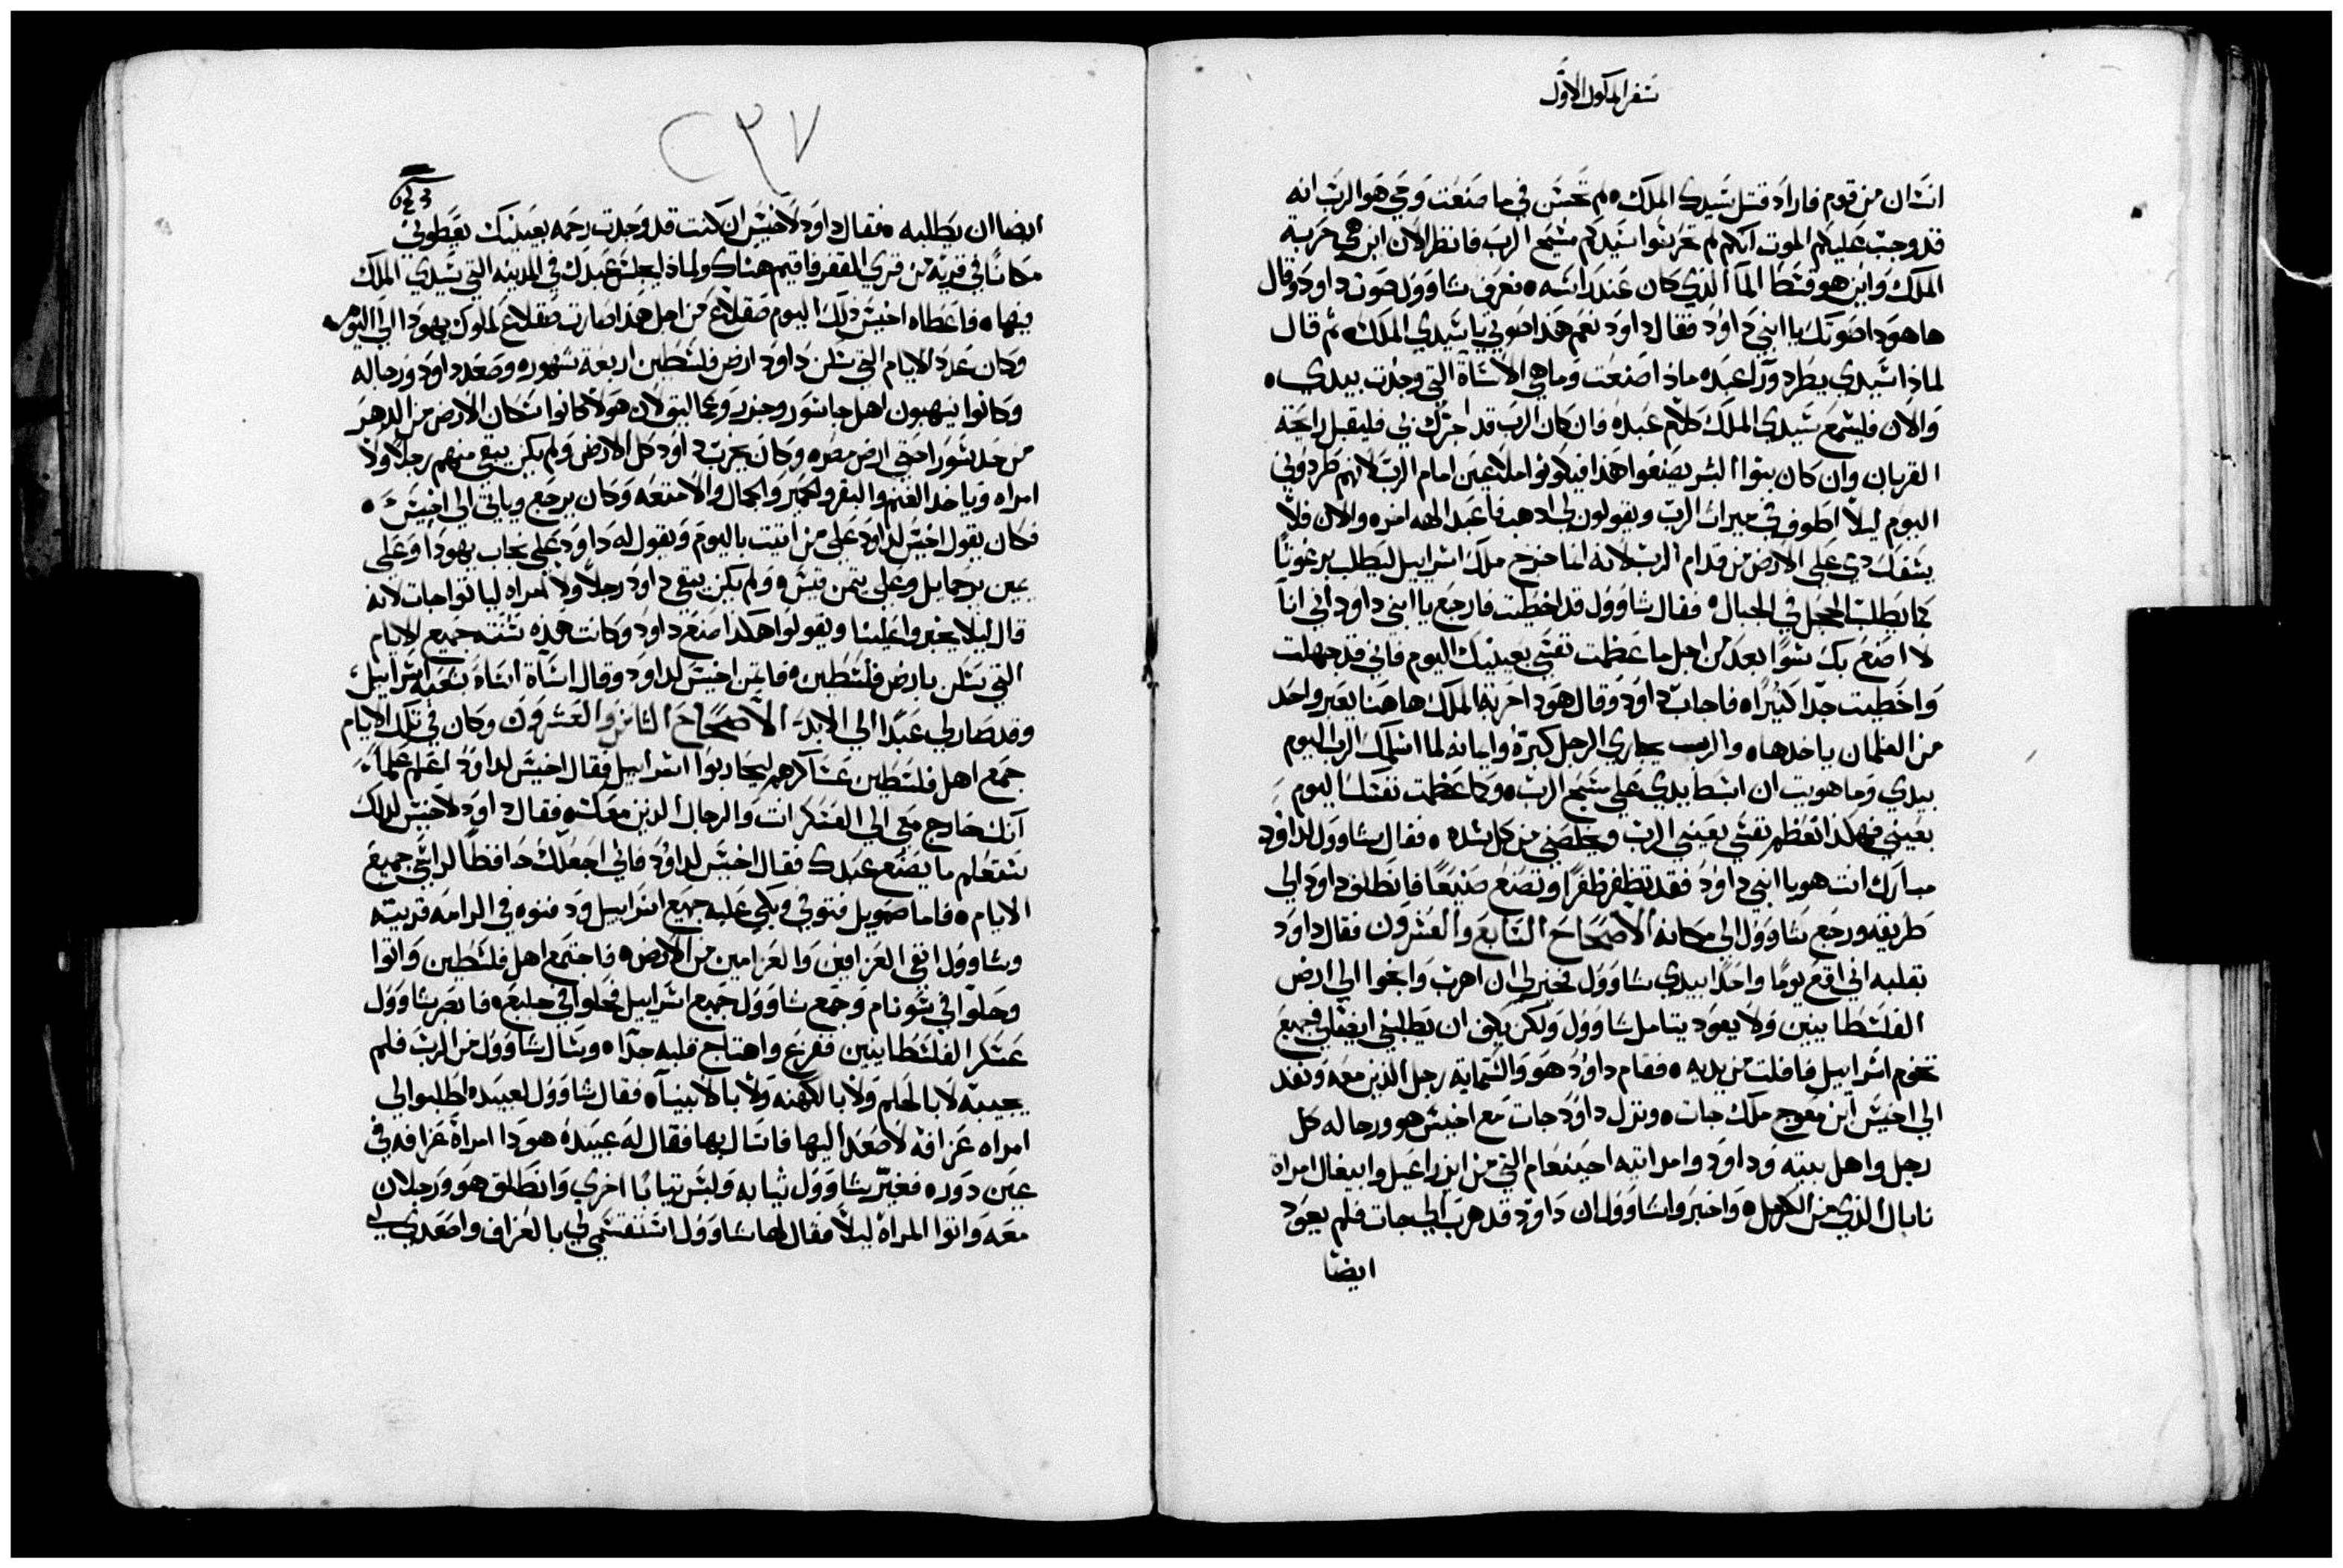 سفر الملوك الاول
انسان من قوم فاراد قتل سيدك الملك ولم تحسن في ما صنعت وحي هو الرب انه
قد وجب عليكم الموت انكم لم تحرسوا سيدكم مسيح الرب فانظر الان اين هي حربة
الملك واين هو قسط المآ الذي كان عند راسه فعرف شاوول صوت داود وقال
ها هودا صوتك يا ابني داود فقال داود نعم هذا صوتي يا سيدي الملك ثم قال
لماذا سيدي يطرد ورآ عبده ماذا صنعت وما هي الاساة التي وجدت بيدي
والان فليسمع سيدي الملك كلام عبده فان كان الرب قد احرك بي فليقبل رايحة
القربان وان كان بنوا البشر يصنعوا هذا فيكونوا ملاعين امام الرب لانهم طردوني
اليوم ليلا اطوف في ميراث الرب ويقولون لي ادهب فاعبد الهه اخره والان فلا
يسفك دمي على الارض من قدام الرب لانه انما خرج ملك اسراييل ليطلب برغوثا
كما يطلب الحجل في الجبال فقال شاوول قد اخطيت فارجع يا ابني داود اني انا
لا اصنع بك سوا بعد من اجل ما عظمت نفسي بعينيك اليوم فاني قد جهلت
واخطيت جدا كثيرا فاجاب داود وقال هودا حربة الملك هاهنا يعبر واحد
من الغلمان ياخدها والرب يجاري الرجل كبره وايمانه لما اسلمك الرب اليوم
بيدي وما هويت ان ابسط يدي على مسيح الرب وكما عظمت نفسك اليوم
بعيني فهكذا تعظم نفسي بعيني الرب ويخلصني من كل شده فقال شاوول لداود
مبارك انت هو يا ابني داود فقد تظفر ظفرا وتصنع صنيعا فانطلق داود الى
طريقه ورجع شاوول الي مكانه الاصحاح السابع والعشرون فقال داود
بقلبه اني اقع يوما واحدا بيدي شاوول فخير لي ان اهرب وانجوا الي ارض
الفلسطانيين ولا يعود يتامل شاوول ولكن يكف ان يطلبني ايضا في جميع
تخوم اسراييل فافلت من يديه فقام داود هو والستماية رجل الذين معه ونفد
الي اخيش ابن معوج ملك جات ونزل داود جات مع اخيش هو ورجاله كل
رجل واهل بيته وداود وامراتيه احينعام التي من ايزراعيل وابيغال امراة
نابال الذي من الكرمل واخبروا شاوول ان داود قد هرب الي جات فلم يعود
ايضا
٢٣٧
ايضا ان يطلبه فقال داود لاخيش ان كنت قد وجدت رحمه بعينيك يعطوني
مكانا في قرية من قري القفر فاقيم هناك ولماذا يجلس عبدك في المدينه التي سيدي الملك
فيها فاعطاه اخيش ذلك اليوم صقلاغ من اجل هذا صارت صقلاغ لملوك يهودا الي اليوم
وكان عدد الايام التي سكن داود ارض فلسطين اربعة شهور وصعد داود ورجاله
وكانوا ينهبون اهل جاشور وجزر وعماليق لان هولا كانوا سكان الارض من الدهر
من حد سور احتي ارض مصر وكان يخرب داود كل الارض ولم يكن يبقي منهم رجلا ولا
امراه وياخد الغنم والبقر والحمير والجمال والامتعه وكان يرجع وياتي الي اخيش
فكان يقول اخيش لداود علي من اتيت باليوم ويقول له داود علي نجاب يهودا وعلي
يمين يرحماييل وعلي يتمن قيس ولم يكن يبقي داود رجلا ولا امراه لياتوا جات لانه
قال ليلا يخبروا علينا ويقولوا هكذا صنع داود وكانت هذه سنته جميع الايام
التي سكن بارض فلسطين فامن اخيش لداود وقال اساة اساة بشعبه اسراييل
وقد صار لي عبدا الي الابد الاصحاح الثامن والعشرون وكان في تلك الايام
جمع اهل فلسطين عساكرهم ليحاربوا اسراييل فقال اخيش لداود اعلم علما
انك خارج معي الي العسكرات والرجال الدين معك فقال داود لاخيش لدلك
ستعلم ما يصنع عبدك فقال اخيش لداود فاني اجعلك حافظا لراسي جميع
الايام فاما صمويل فتوفي وبكي عليه جميع اسراييل ودفنوه في الرامه قريته
وشاوول نفي العرافين والعزامين من الارض فاجتمع اهل فلسطين واتوا
وحلوا في شونام وجمع شاوول جميع اسراييل فحلوا في جلبع فابصر شاوول
عسكر الفلسطانيين ففزع واهتاج قلبه جدا وسال شاوول من الرب فلم
يجيبه لا بالحلم ولا بالكهنه ولا بالانبيآ فقال شاوول لعبيده اطلبوا لي
امراه عرافه لاصعد اليها فاسال بها فقال له عبيده هودا امراة عرافه في
عين دوره فغير شاوول ثيابه ولبس ثيابا اخري وانطلق هو ورجلان
معه واتوا المراة ليلا فقال لها شاوول استقسمي لي بالعراف واصعدي لي